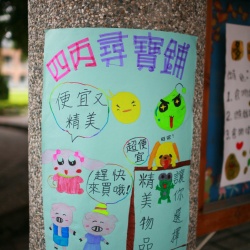 四丙尋寶鋪
便宜又
精美
超便
宜
趕快
來買哦!
讓你選擇
精美物品